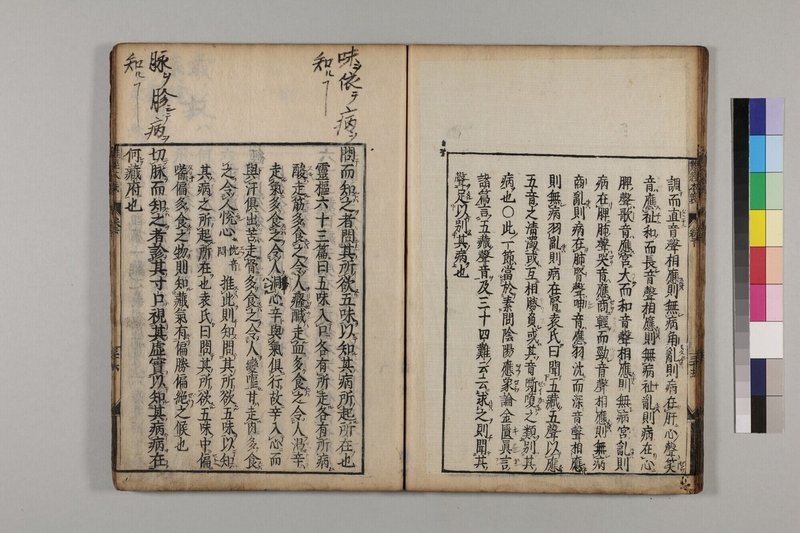 調而直音聲相應則無病角亂則病在肝心聲笑
音應徵和而長音聲相應則無病徵亂則病在心
脾聲歌音應宮大而和音聲相應則無病宮亂則
病在脾肺聲哭音應商輕而勁音聲相應則無病
商亂則病在肺腎聲呻音應羽沈而深音聲相應
則無病羽亂則病在腎袁氏曰聞五藏五聲以應
五音之清濁或互相勝負或其音嘶嗄之類別其
病也〇此一節當於素問陰陽應象論金匱真言
諸篇言五藏聲音及三十四難云云求之則聞其
聲足以別其病也
味ヲ依テ病ヲ
知ル
問而知之者問其所欲五味以知其病所起所在也
靈樞六十三篇曰五味入口各有所走各有所病
酸走筋多食之令人癃鹹走血多食之令人渴辛
走氣多食之令人洞心辛與氣俱行故辛入心而
與汗俱出苦走骨多食之令人變嘔甘走肉多食
之令人悗心悗音悶推此則知問其所欲五味以知
其病之所起所在也袁氏曰問其所欲五味中偏
嗜偏多食之物則知藏氣有偏勝偏絕之候也
脉ヲ胗病ヲ
知ル
切脉而知之者診其寸口視其虛實以知其病病在
何藏府也